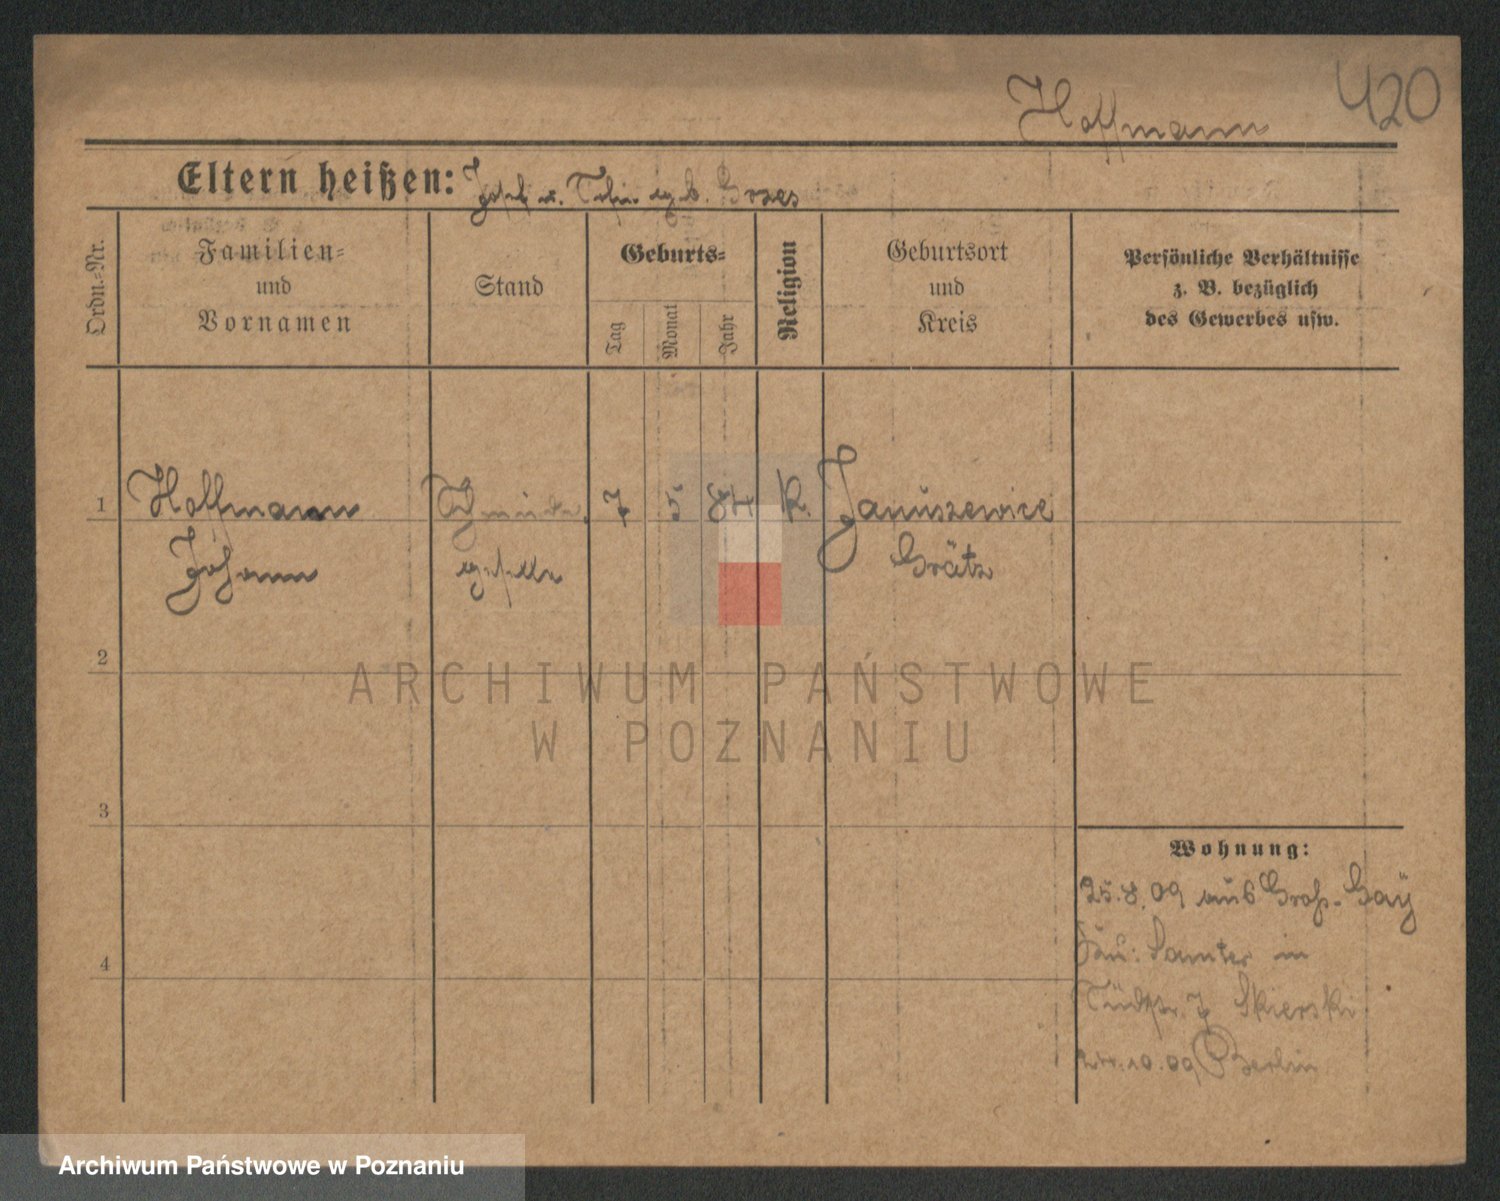 Hoffmann
420
Eltern heißen: Josef u. geb.
Ordn.-Nr.
Familien-
und
Vornamen
Stand
Geburts-
Tag
Monat
Jahr
Religion
Geburtsort
und
Kreis
Persönliche Verhältnisse
z. B. bezüglich
des Gewerbes usw.
1 Hoffmann 7 5 84 K. Januszewice
Johann geselle Grätz
2
3
4
Wohnung:
25.8.09 aus Groß-Gay
Samter in
7 Skierski
24.10.09 Berlin
ARCHIWUM PAŃSTWOWE
W POZNANIU
Archiwum Państwowe w Poznaniu